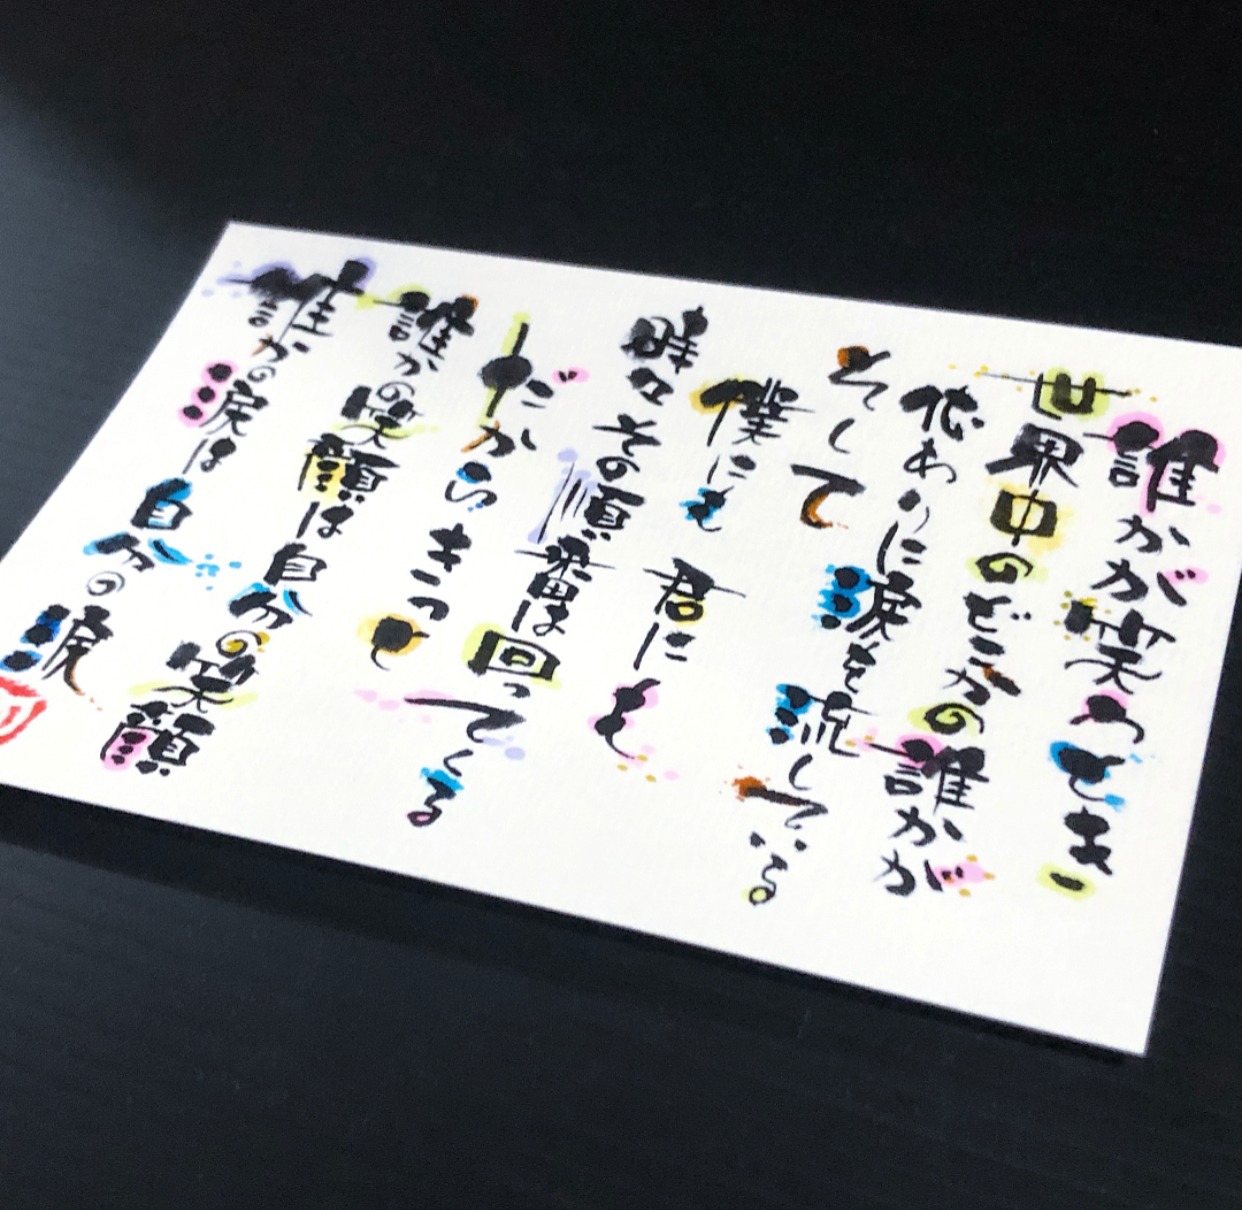 誰かが笑うとき
世界中のどこかの誰かが
代わりに涙を流している
そして
僕にも 君にも
時々その順番は回ってくる
だからきっと
誰かの笑顔は自分の笑顔
誰かの涙は自分の涙